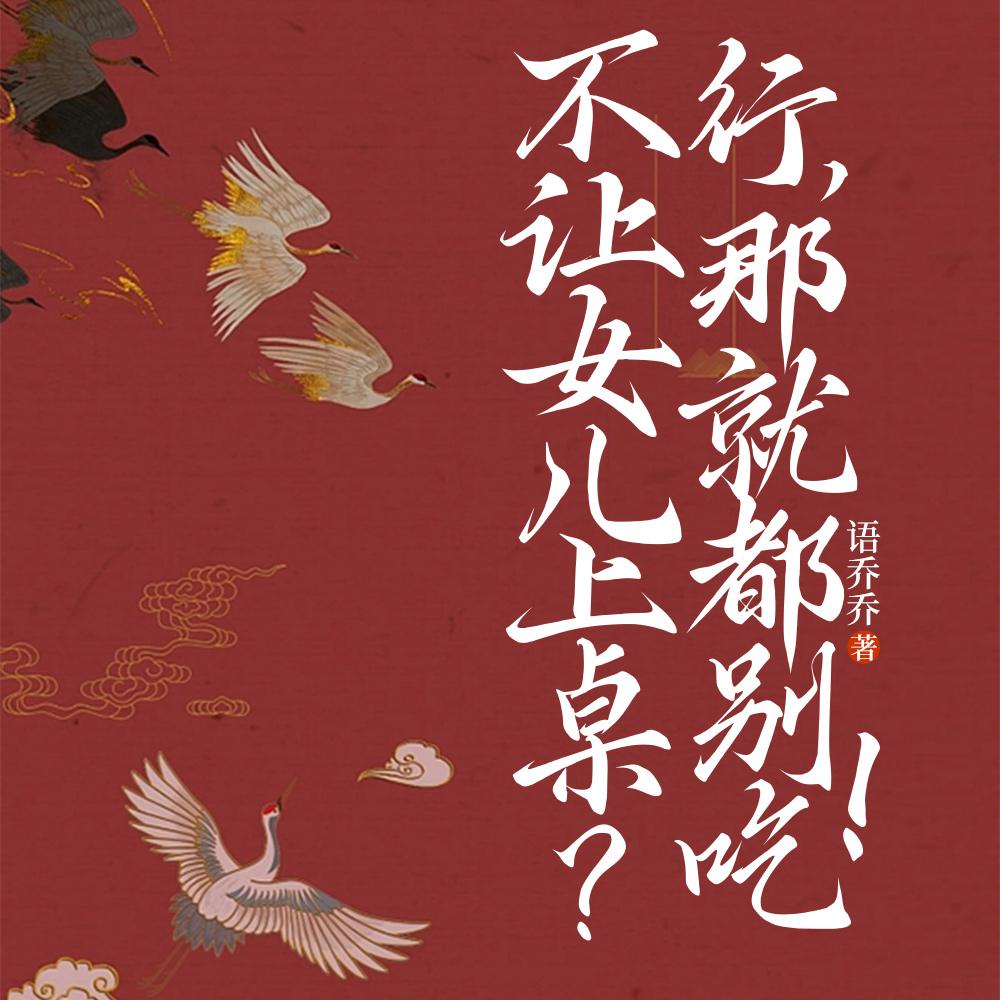 不让女儿上桌？
行，那就都别吃！
语乔乔 著